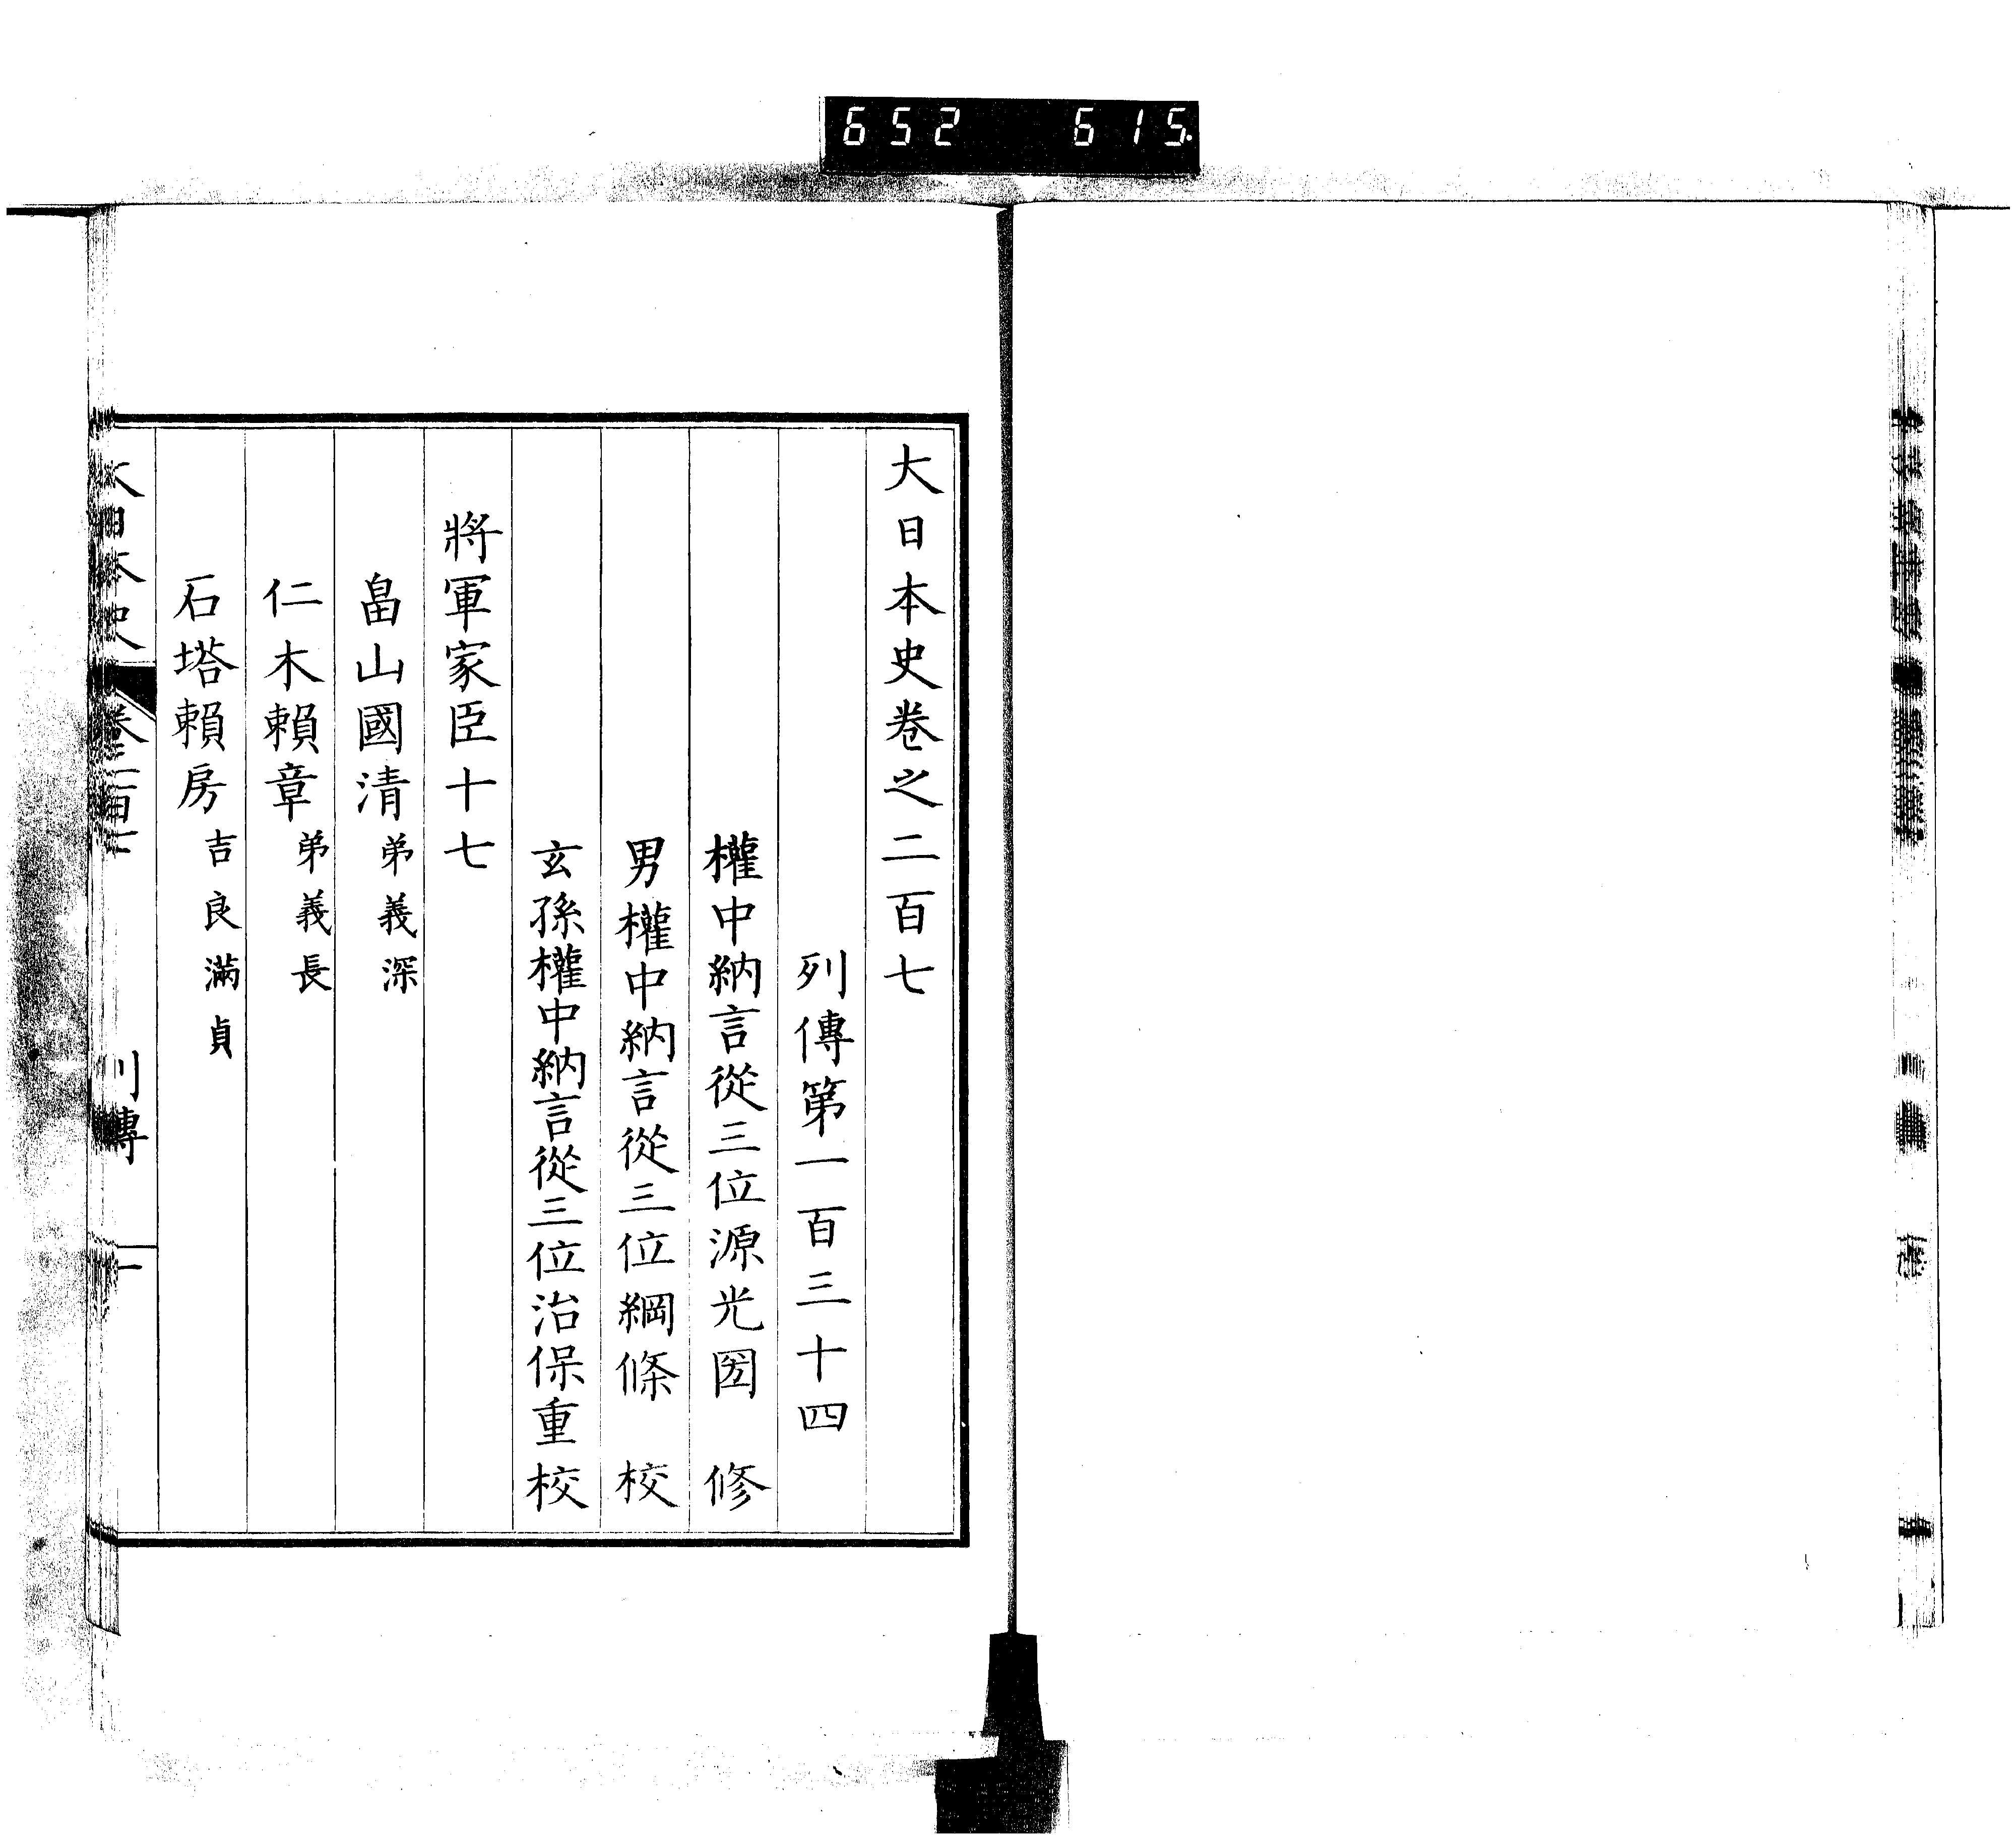 652 615
大日本史卷之二百七
列傳第一百三十四
權中納言從三位源光圀 修
男權中納言從三位綱條 校
玄孫權中納言從三位治保重校
將軍家臣十七
畠山國清 弟義深
仁木賴章 弟義長
石塔賴房 吉良滿貞
大日本史 卷二百七 列傳 一